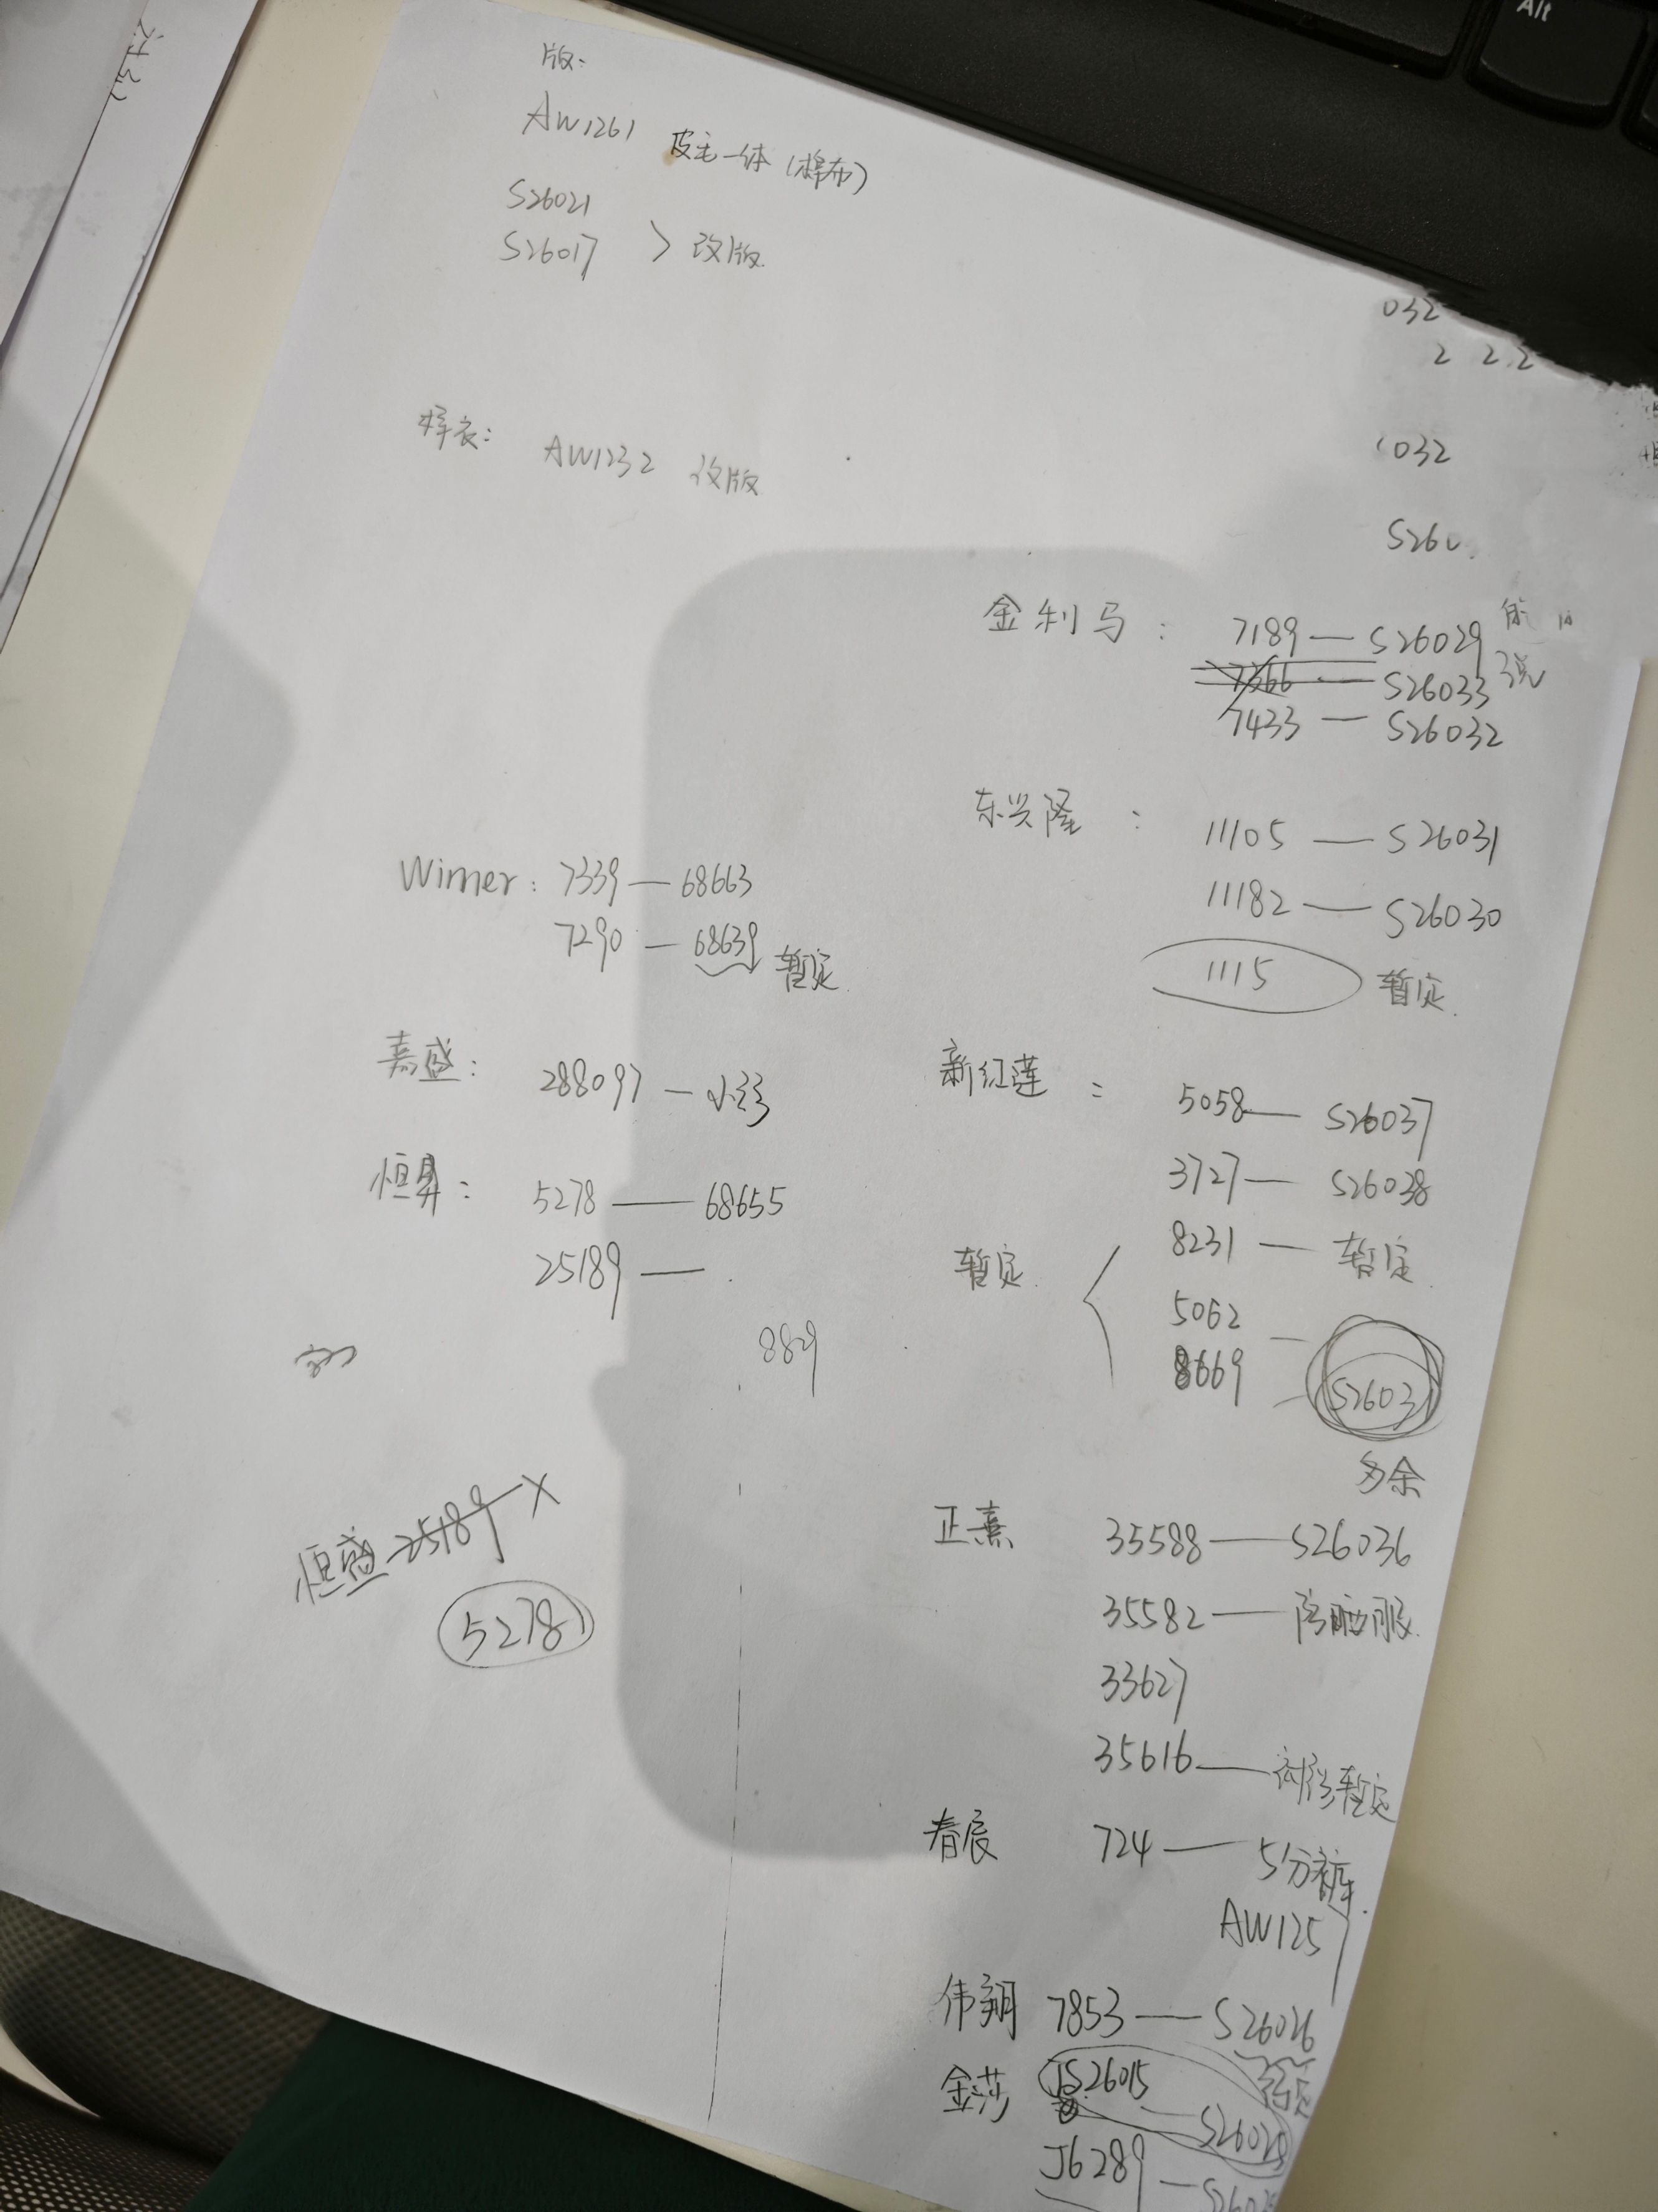 版:
AW1261 皮毛一体(棉布)
S26021
S26017 > 改版
032
2 2.2
032
样衣: AW1232 改版
S260
金利马: 7189 — S26029
7366 — S26033
7433 — S26032
东兴隆: 11105 — S26031
11182 — S26030
1115 暂定
Winner: 7339 — 68663
7290 — 68639 暂定
嘉盛: 288097 — 小衫
恒昇: 5278 — 68655
25189 —
889
新红莲: 5058 — S26037
3727 — S26038
8231 — 暂定
暂定 5062
8669 — S2603
多余
恒盛 25189 X
5278
正熹 35588 — S26036
35582 — 防晒服
33627
35616 — 暂定
春辰 724 — 5分裤
AW125
伟翔 7853 — S26026
待定
金莎 JS26015 — S26028
J6289 —